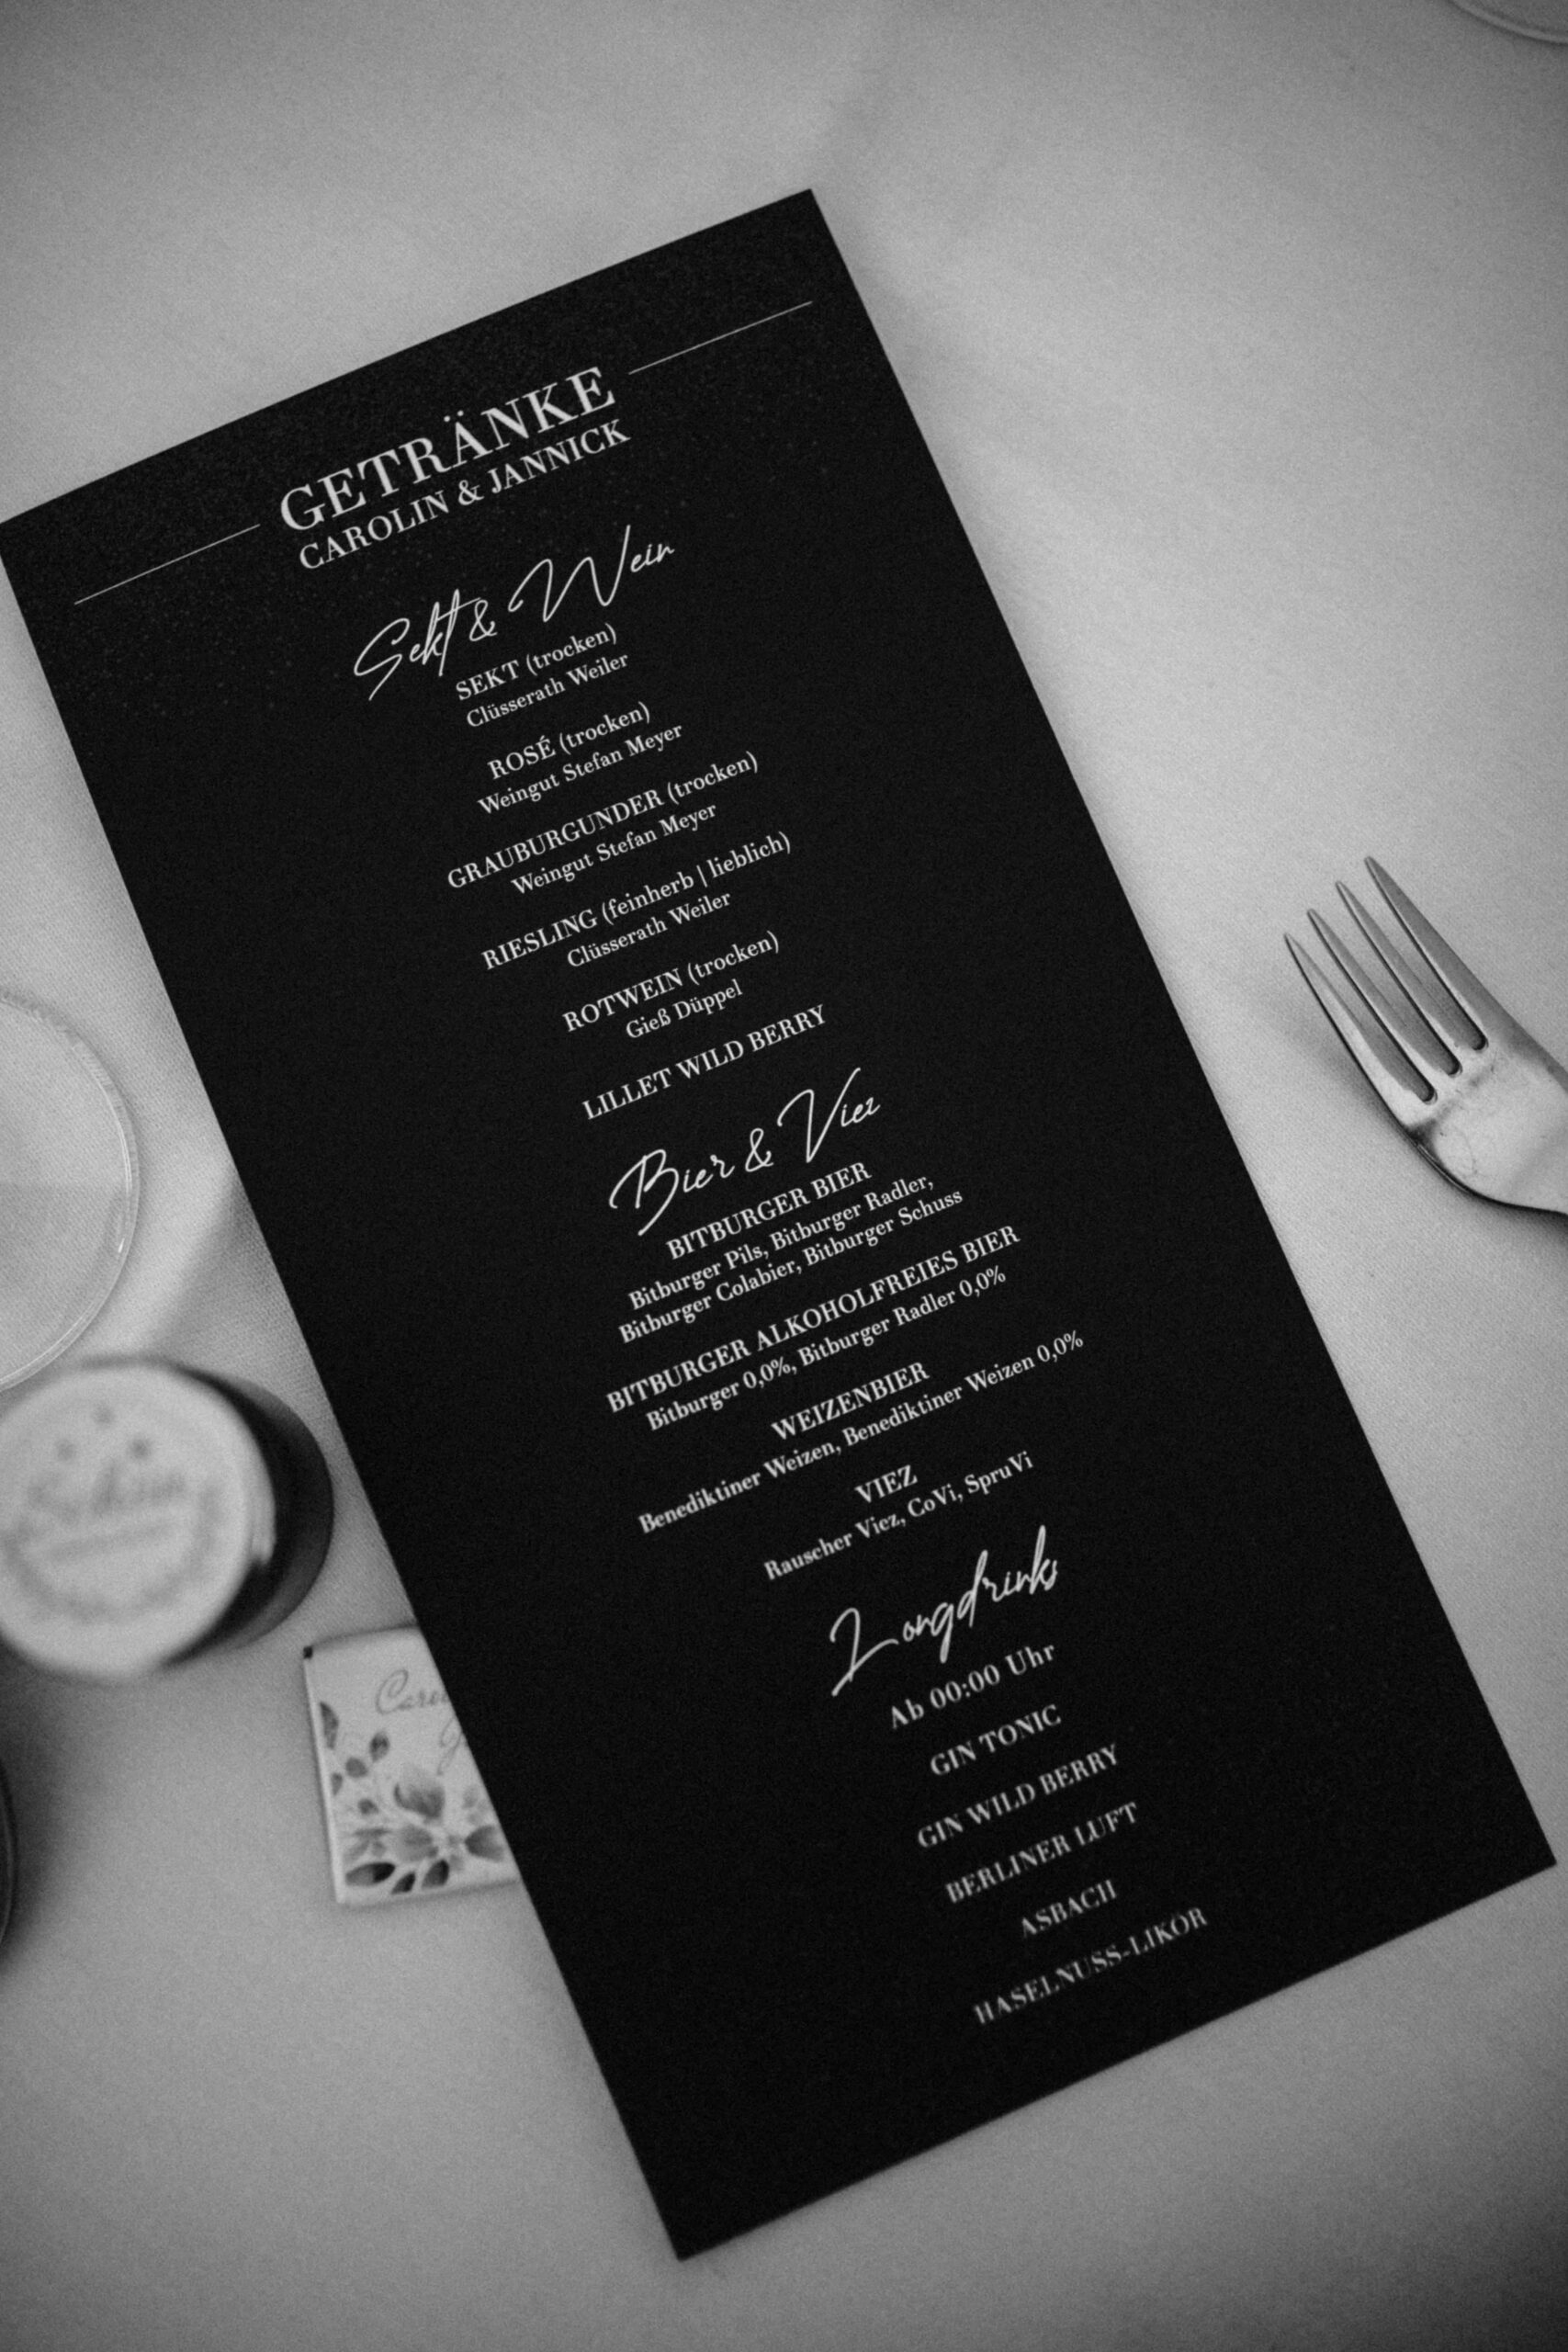 GETRÄNKE
CAROLIN & JANNICK
Sekt & Wein
SEKT (trocken)
Clüsserath Weiler
ROSÉ (trocken)
Weingut Stefan Meyer
GRAUBURGUNDER (trocken)
Weingut Stefan Meyer
RIESLING (feinherb | lieblich)
Clüsserath Weiler
ROTWEIN (trocken)
Gieß Düppel
LILLET WILD BERRY
Bier & Viez
BITBURGER BIER
Bitburger Pils, Bitburger Radler,
Bitburger Colabier, Bitburger Schuss
BITBURGER ALKOHOLFREIES BIER
Bitburger 0,0%, Bitburger Radler 0,0%
WEIZENBIER
Benediktiner Weizen, Benediktiner Weizen 0,0%
VIEZ
Rauscher Viez, CoVi, SpruVi
Longdrinks
Ab 00:00 Uhr
GIN TONIC
GIN WILD BERRY
BERLINER LUFT
ASBACH
HASELNUSS-LIKÖR